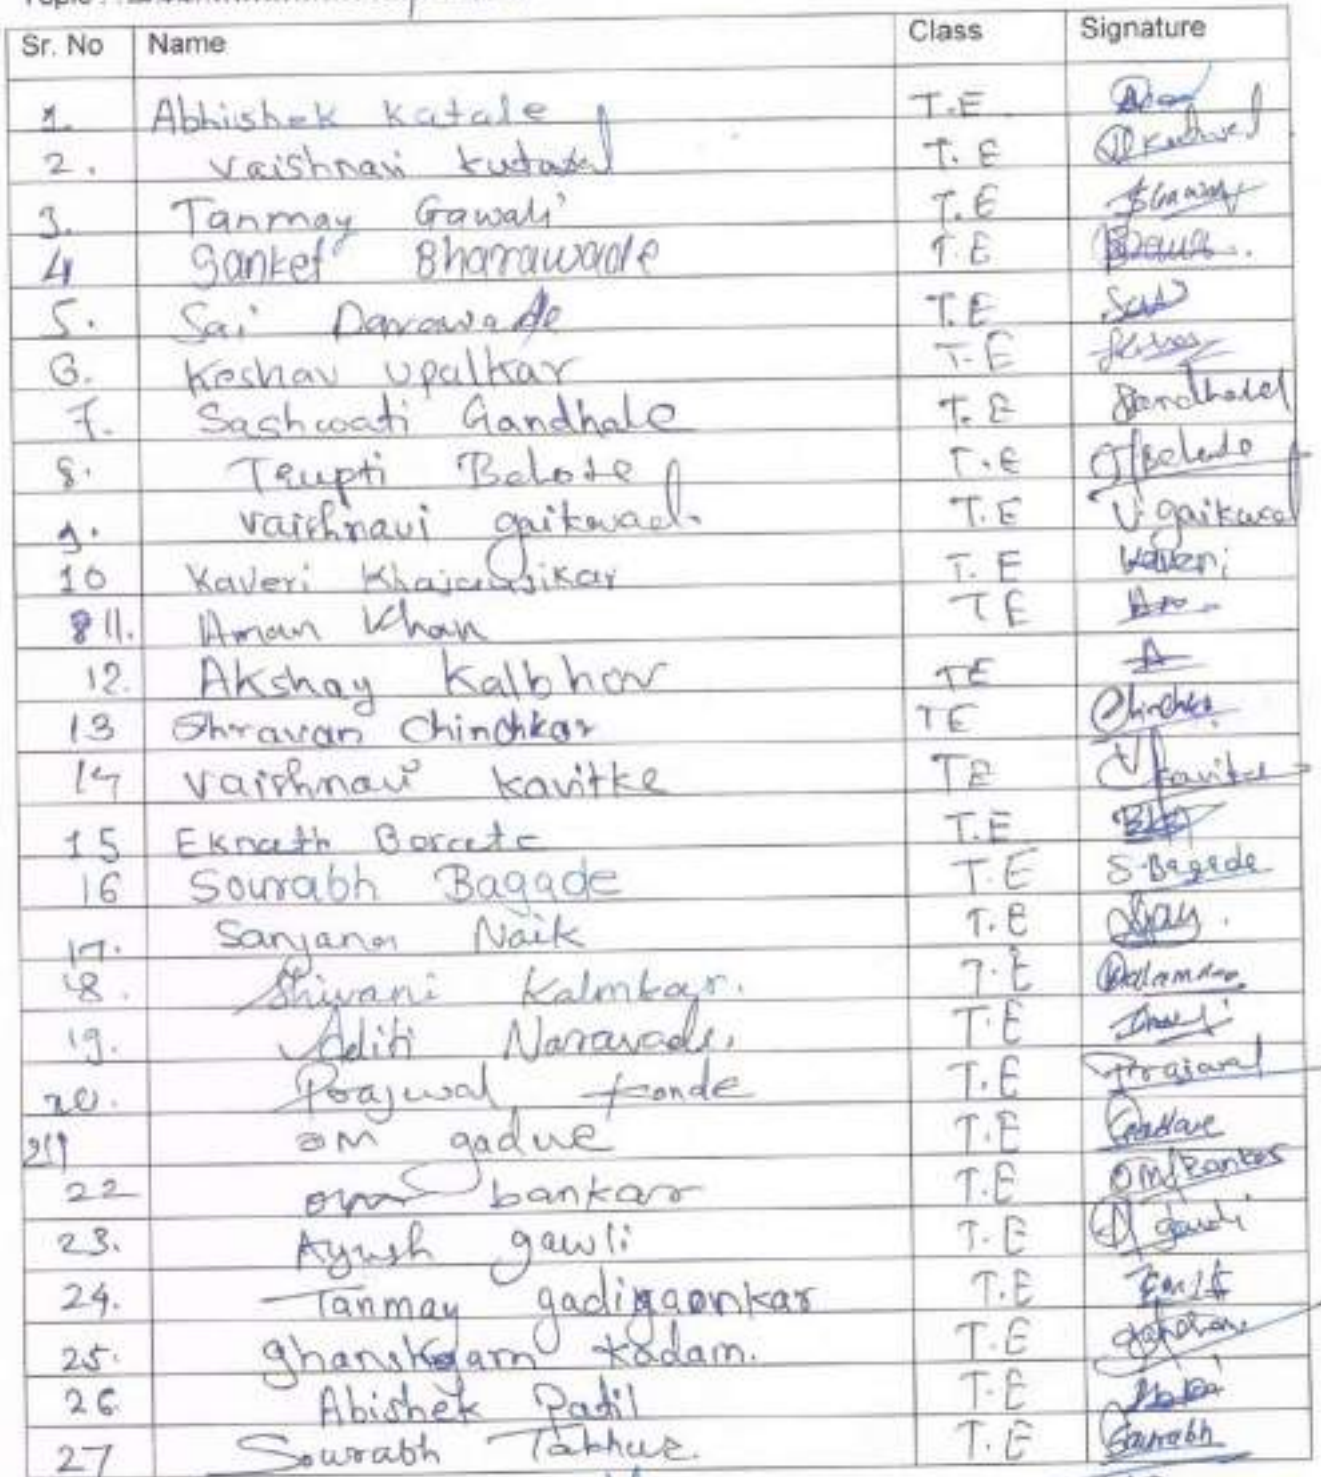 Topic :
Sr. No Name Class Signature
1. Abhishek Katale T.E
2. Vaishnavi kutwal T.E
3. Tanmay Gawali T.E
4 Sanket Bharawade T.E
5. Sai Darawade T.E
6. Keshav Upalkar T.E
7. Sashwati Gandhale T.E
8. Trupti Belote T.E
9. vaishnavi gaikwad. T.E V. gaikwad
10 Kaveri T.E Kaveri
11. Aman Khan T E
12. Akshay Kalbhor TE A
13 Shravan Chinchkar TE
14 Vaishnavi kavitke TE
15 Eknath Borate T.E
16 Sourabh Bagade T.E S.Bagade
17. Sanjana Naik T.E
18. Shivani Kalmkar. T.E
19. Aditi Naravade. T.E
20. Prajwal Konde T.E Prajawal
21 om gadve T.E
22 om bankar T.E
23. Ayush gawli T.E
24. Tanmay gadigaonkar T.E
25. ghanshyam kadam. T.E
26 Abishek Patil T.E
27 Sourabh T.E Sourabh